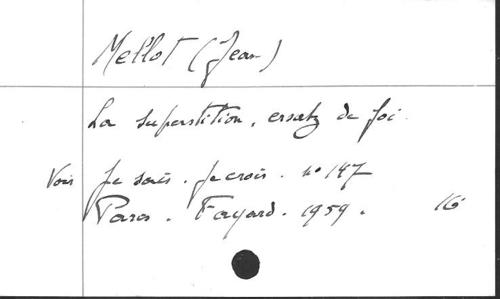 Mellot (Jean)
La superstition, ersatz de foi.
Voir Je sais. Je crois. n° 147
Paris. Fayard. 1959. 16°